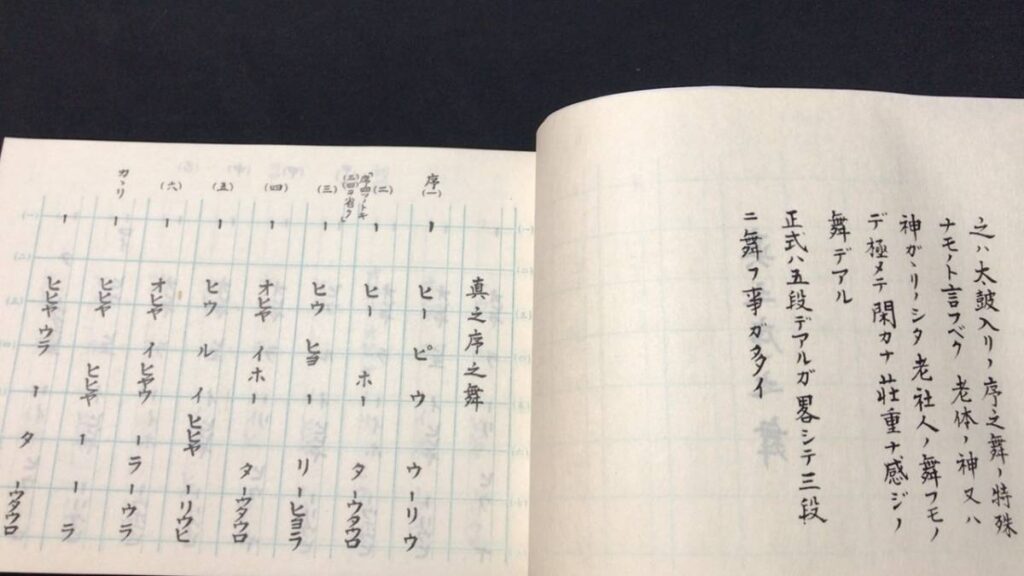 之ハ太鼓入リノ序之舞ノ特殊
ナモノト言フベク 老体ノ神又ハ
神ガヽリノシタ老社人ノ舞フモノ
デ極メテ閑カナ荘重ナ感ジノ
舞デアル
正式ハ五段デアルガ畧シテ三段
ニ舞フ事ガ多イ
真之序之舞
序(一) ヒーピウ ウーリウ
(二) ヒーホー ターウタウロ
(三) ヒウ ヨー リーヒヨラ
(四) オヒヤ イホー ターウタウロ
(五) ヒウルイ ヒヒヤ ーリウヒ
(六) オヒヤ イヒヤウ ーラーウラ
カヽリ ヒヒヤ ヒヒヤ ーーラ
ヒヒヤウラ ーター ウタウロ